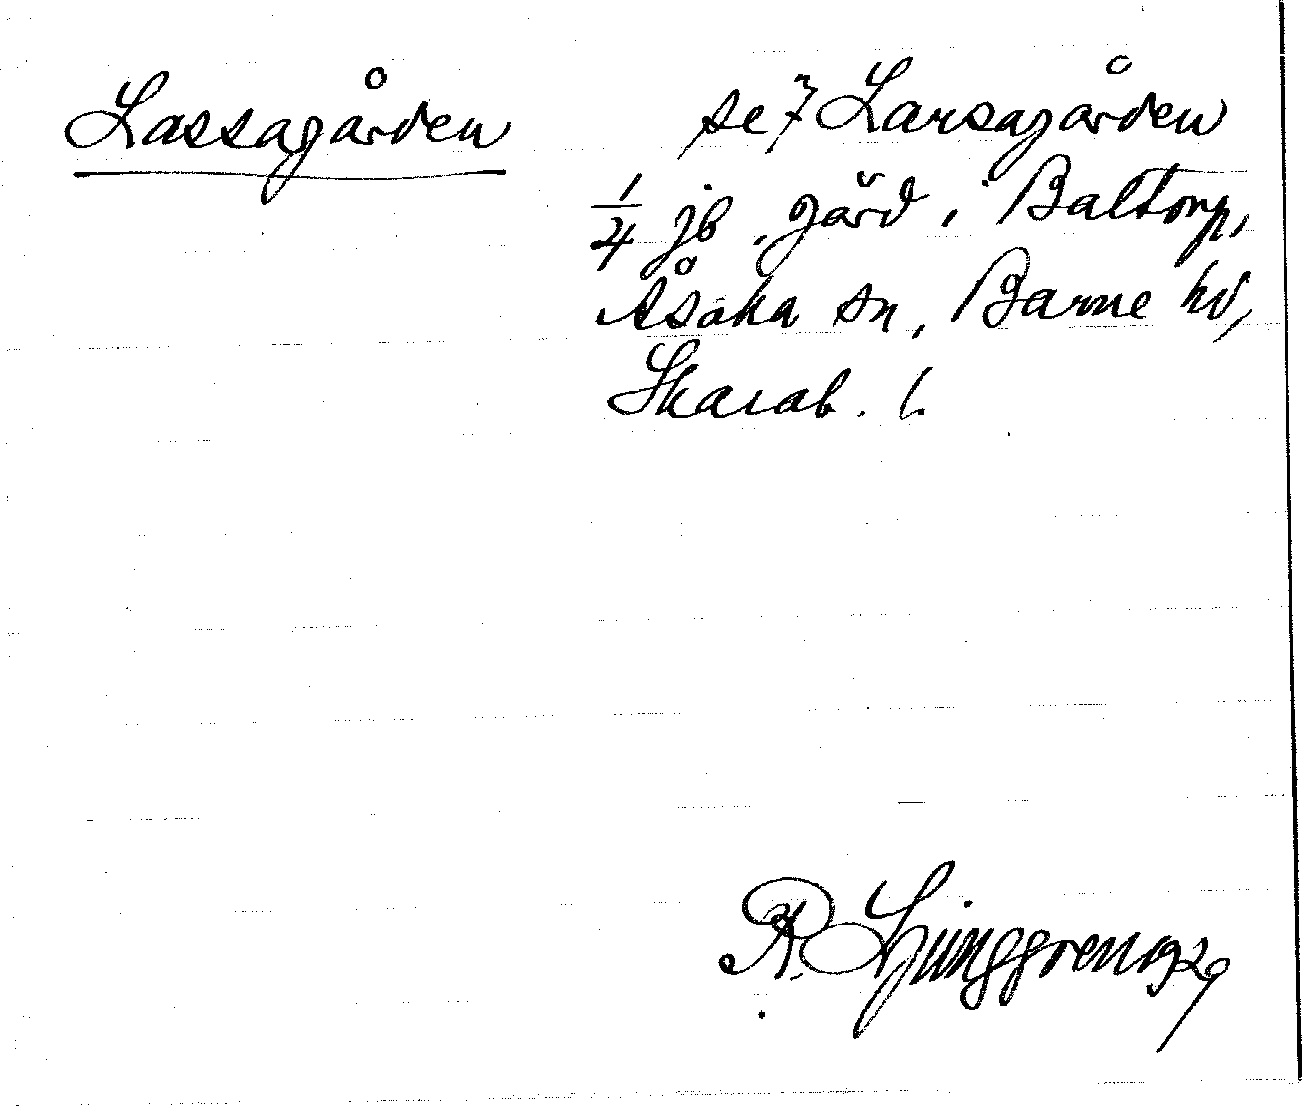 Lassagården
se 7 Larsagården
1/4 jb. gård i Baltorp,
Åsaka sn, Barne hd,
Skarab. l.
R. Ljunggren 1929